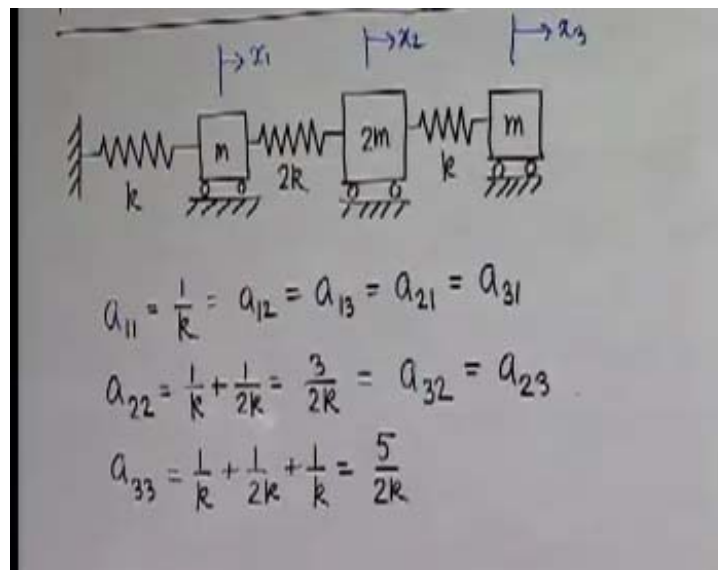 x₁ x₂ x₃
m 2m m
k 2k k
a₁₁ = 1/k = a₁₂ = a₁₃ = a₂₁ = a₃₁
a₂₂ = 1/k + 1/2k = 3/2k = a₃₂ = a₂₃
a₃₃ = 1/k + 1/2k + 1/k = 5/2k